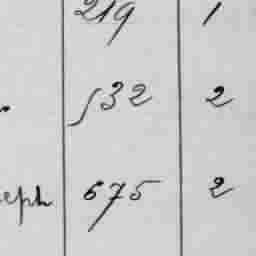 219 1
532 2
eph 675 2